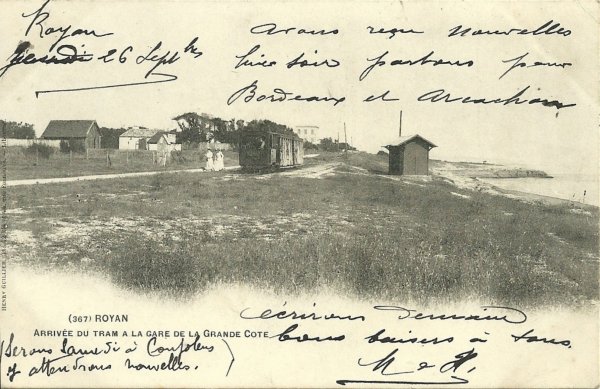 Royan
Jeudi 26 Septbre
Avons reçu nouvelles
hier soir partons pour
Bordeaux et Arcachon
HENRY GUILLIER,
(367) ROYAN
ARRIVÉE DU TRAM A LA GARE DE LA GRANDE COTE
écrirons demain
bons baisers à tous.
M et H.
(Serons Samedi à Confolens
y attendrons nouvelles.)